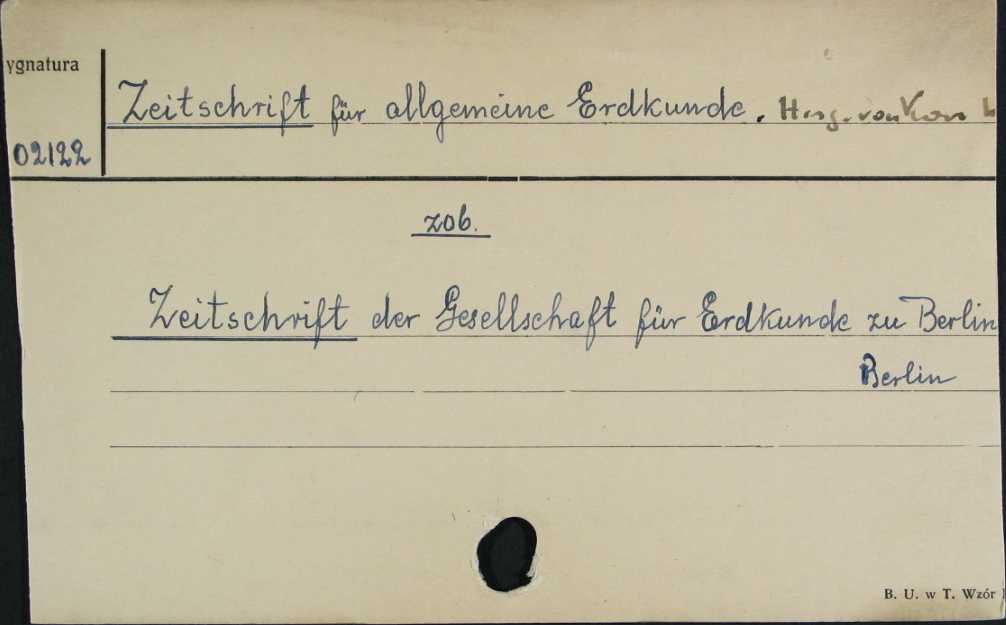 ygnatura
02122
Zeitschrift für allgemeine Erdkunde. Hrsg. von
zob.
Zeitschrift der Gesellschaft für Erdkunde zu Berlin
Berlin
B. U. w T. Wzór